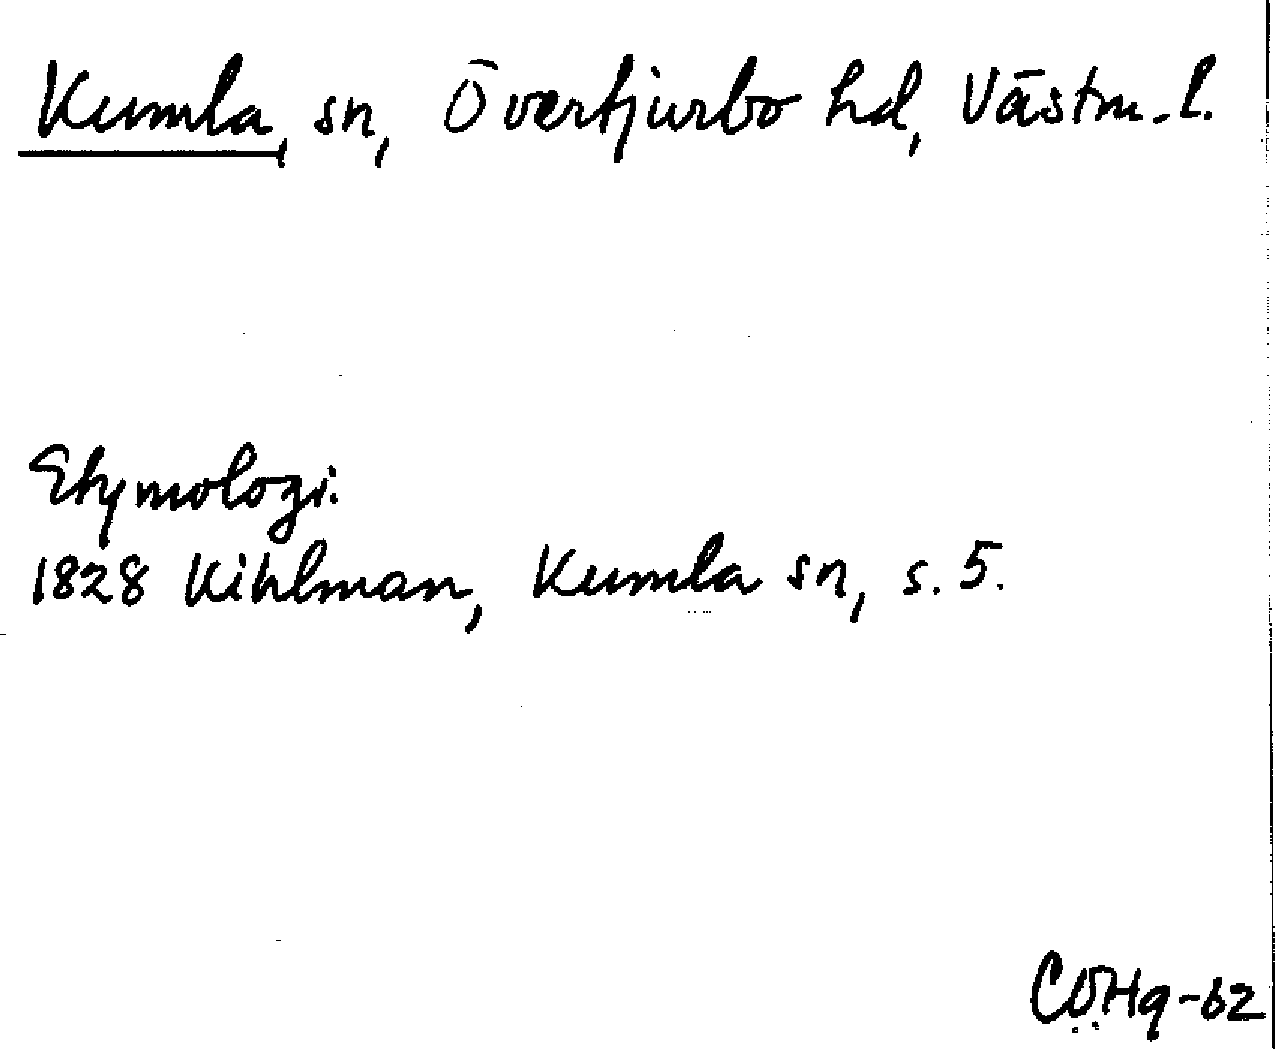 Kumla, sn, Övertjurbo hd, Västm. l.
Etymologi.
1828 Kihlman, Kumla sn, s. 5.
CÖHq-62